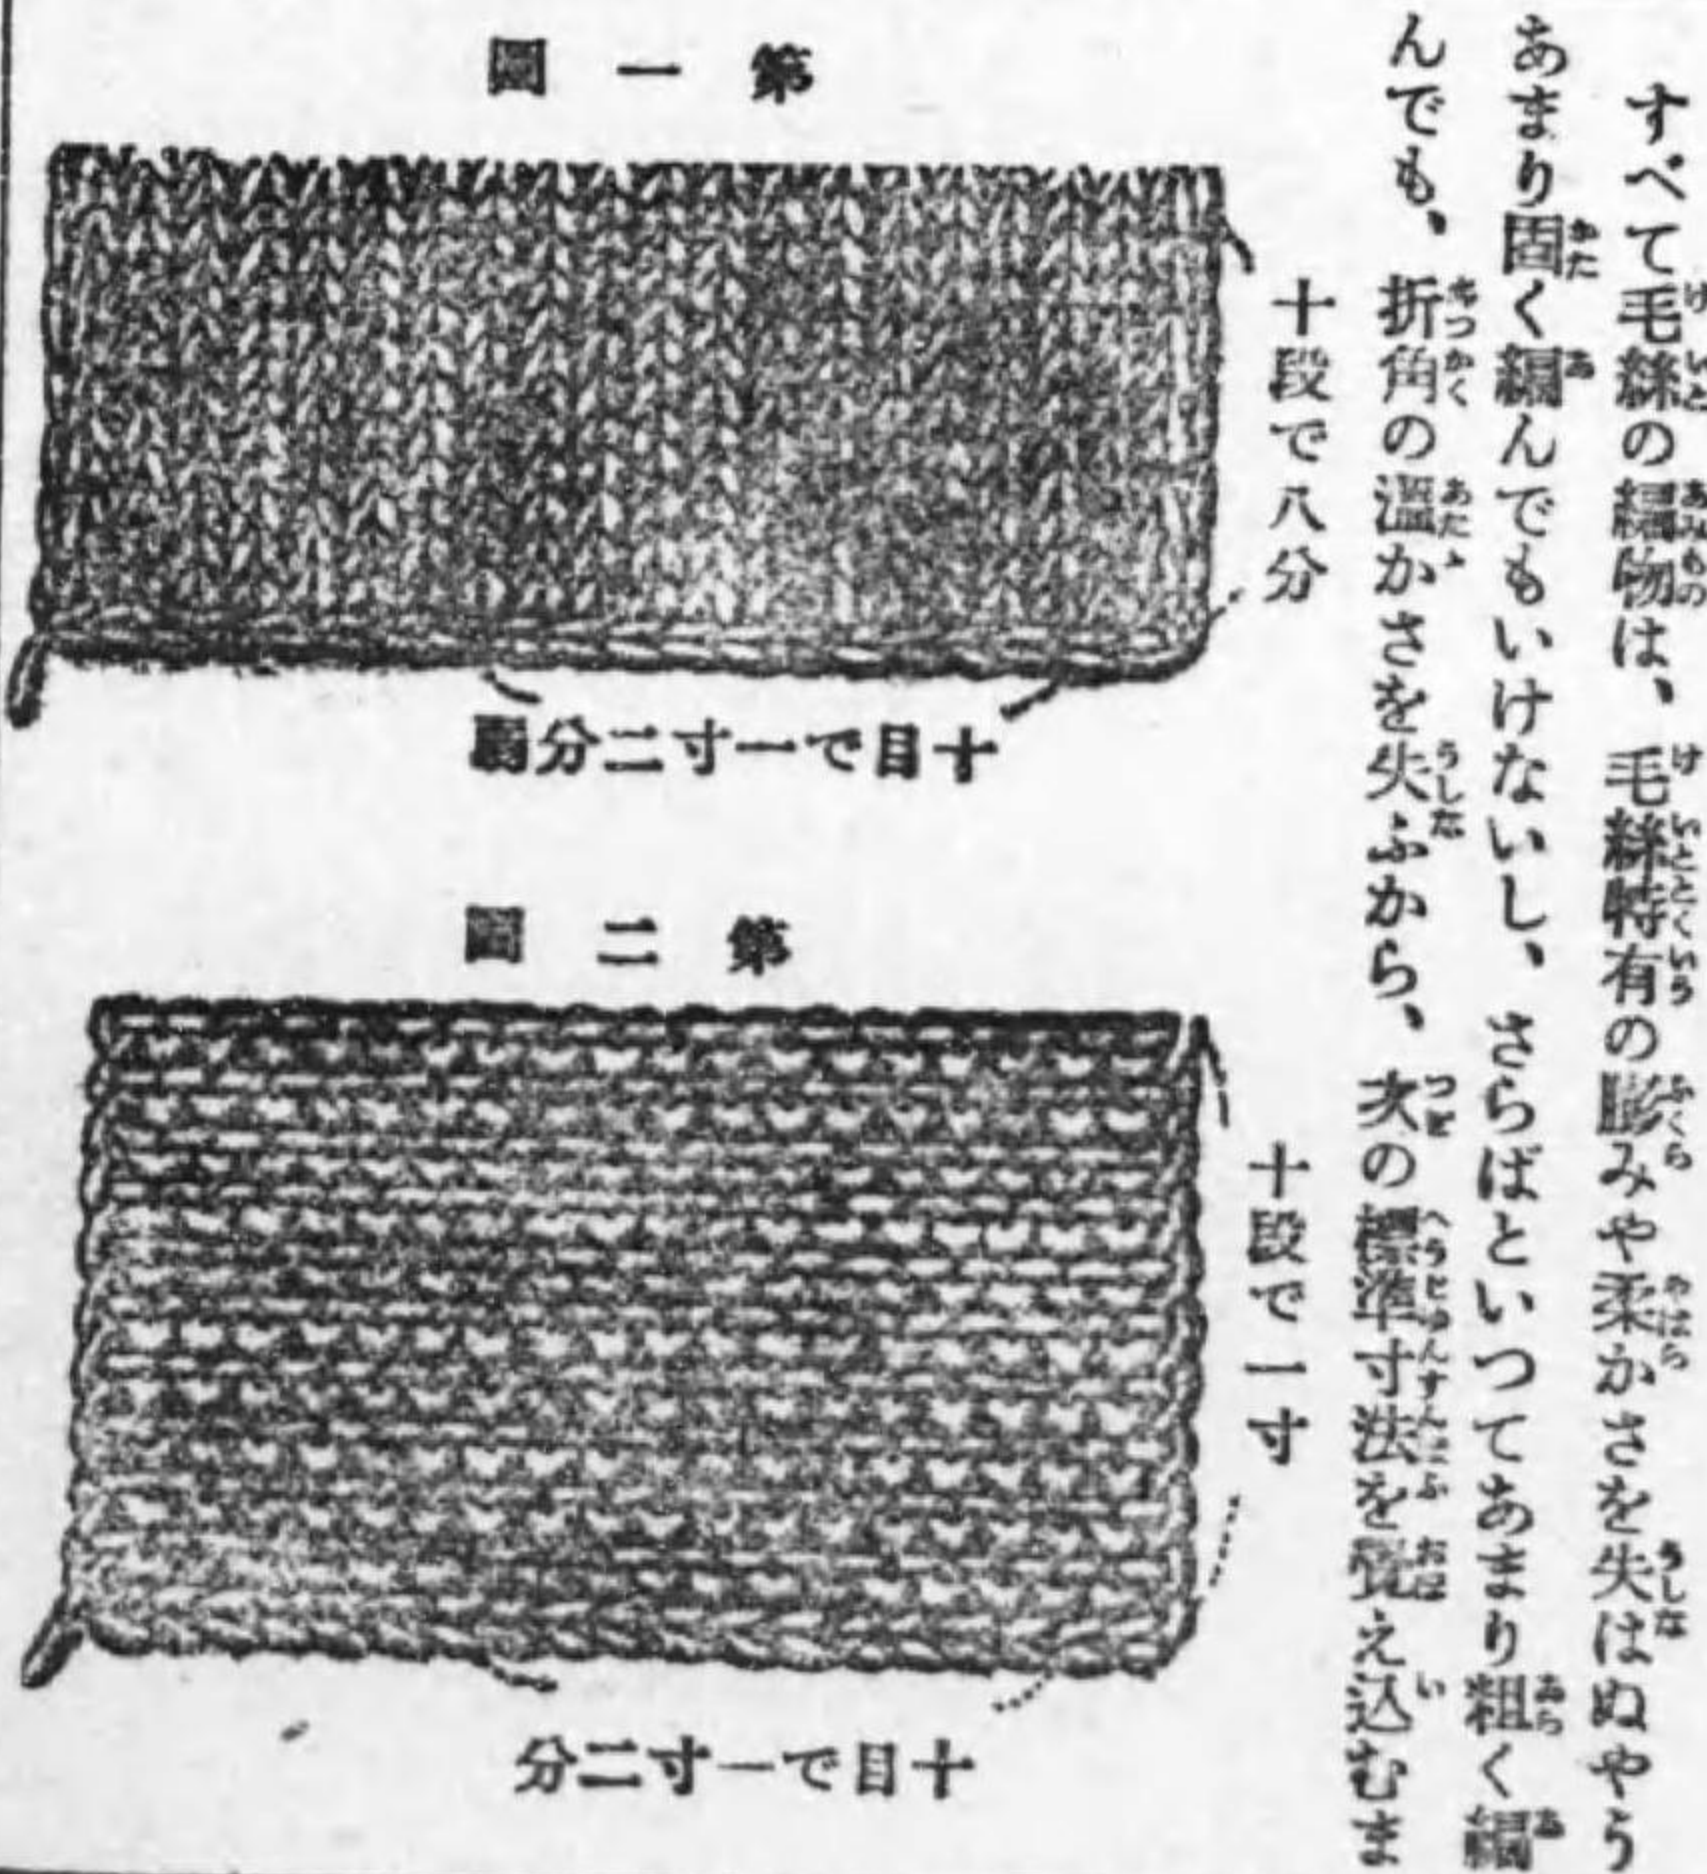 すべて毛絲の編物は、毛絲特有の膨みや柔かさを失はぬやう
あまり固く編んでもいけないし、さらばといつてあまり粗く編
んでも、折角の溫かさを失ふから、次の標準寸法を覺え込むま
第一圖
十段で八分
十目で一寸二分弱
第二圖
十段で一寸
十目で一寸二分